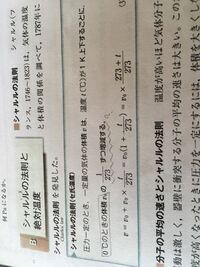 何Paになるか。
B シャルルの法則と
絶対温度
■シャルルの法則 シャルル(フ
ランス，1746〜1823)は，気体の温度
と体積の関係を調べて，1787年に
シャルルの法則を発見した。
シャルルの法則(セ氏温度)
圧力一定のとき，一定量の気体の体積vは，温度t(℃)が1K上下するごとに，
0℃のときの体積v₀の1/273ずつ増減する。
v = v₀ + v₀ × t/273 = v₀(1 + t/273) = v₀ × (273 + t)/273
■分子の平均の速さとシャルルの法則
温度が高いほど気体分子
の平均の速さは大きい。この
動は激しく，器壁に衝突する分子の
度が高くなったときに圧力を一定にするには，体積を大きく